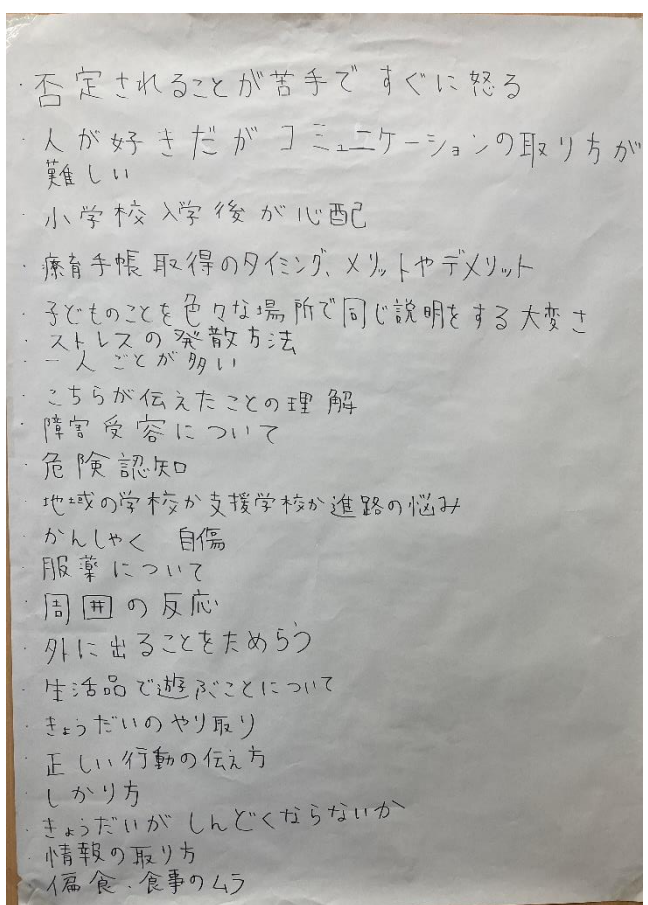 ・否定されることが苦手で すぐに怒る
・人が好きだが コミュニケーションの取り方が
難しい
・小学校 入学後が心配
・療育手帳 取得のタイミング、メリットやデメリット
・子どものことを色々な場所で同じ説明をする大変さ
・ストレスの発散方法
・一人ごとが多い
・こちらが伝えたことの理解
・障害受容について
・危険認知
・地域の学校か支援学校か進路の悩み
・かんしゃく 自傷
・服薬について
・周囲の反応
・外に出ることをためらう
・生活品で遊ぶことについて
・きょうだいのやり取り
・正しい行動の伝え方
・しかり方
・きょうだいが しんどくならないか
・情報の取り方
・偏食・食事のムラ